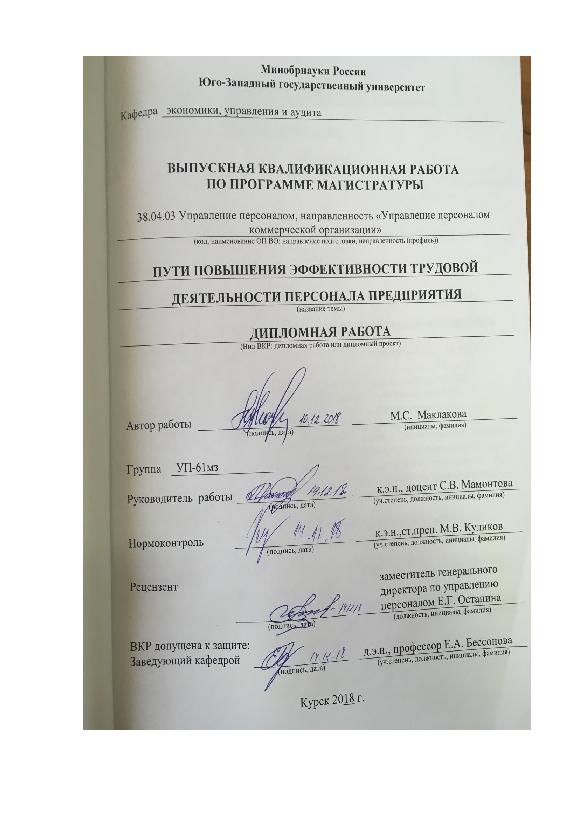 Минобрнауки России
Юго-Западный государственный университет
Кафедра экономики, управления и аудита
ВЫПУСКНАЯ КВАЛИФИКАЦИОННАЯ РАБОТА
ПО ПРОГРАММЕ МАГИСТРАТУРЫ
38.04.03 Управление персоналом, направленность «Управление персоналом
коммерческой организации»
(код, наименование ОП ВО: направление подготовки, направленность (профиль))
ПУТИ ПОВЫШЕНИЯ ЭФФЕКТИВНОСТИ ТРУДОВОЙ
ДЕЯТЕЛЬНОСТИ ПЕРСОНАЛА ПРЕДПРИЯТИЯ
(название темы)
ДИПЛОМНАЯ РАБОТА
(Вид ВКР: дипломная работа или дипломный проект)
Автор работы 10.12.2018 М.С. Маклакова
(подпись, дата) (инициалы, фамилия)
Группа УП-61мз
Руководитель работы 19.12.18 к.э.н., доцент С.В. Мамонтова
(подпись, дата) (уч.степень, должность, инициалы, фамилия)
Нормоконтроль к.э.н.,ст.преп. М.В. Куликов
(подпись, дата) (уч.степень, должность, инициалы, фамилия)
Рецензент заместитель генерального
директора по управлению
персоналом Е.Г. Останина
(подпись, дата) (должность, инициалы, фамилия)
ВКР допущена к защите:
Заведующий кафедрой д.э.н., профессор Е.А. Бессонова
(подпись, дата) (уч.степень, должность, инициалы, фамилия)
Курск 2018 г.